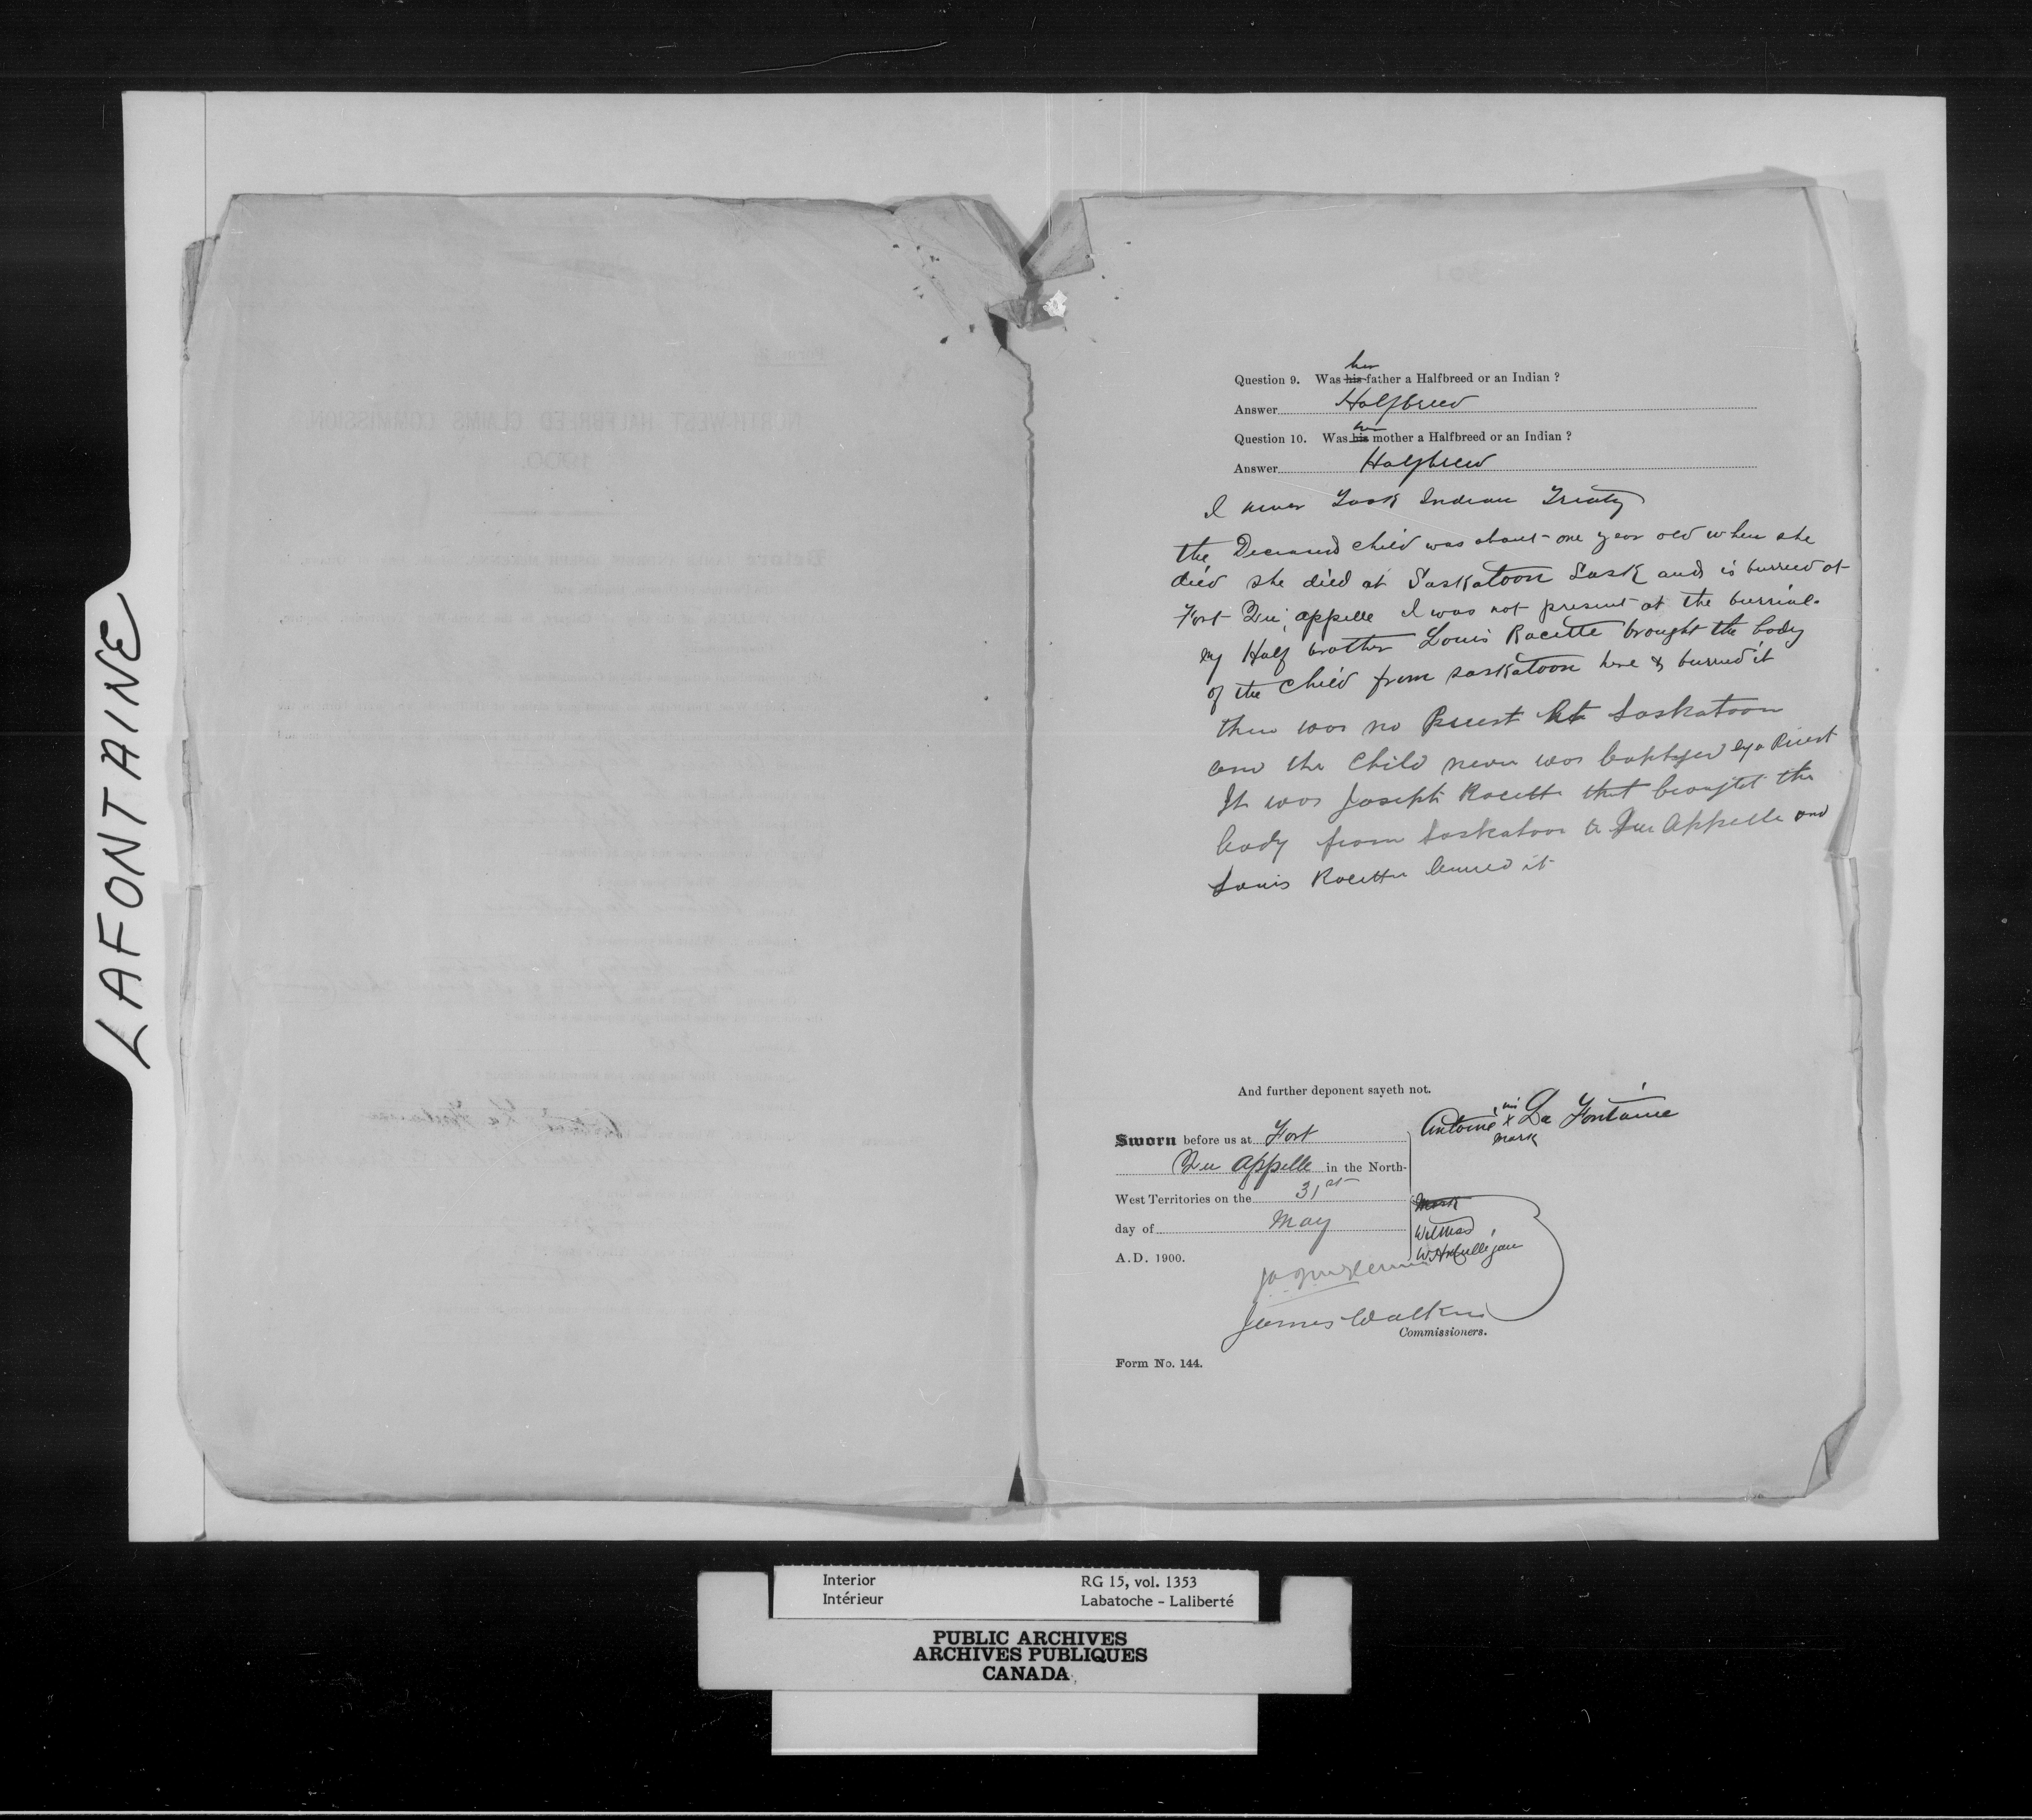 LAFONTAINE
her
Question 9. Was his father a Halfbreed or an Indian ?
Answer Halfbreed
her
Question 10. Was his mother a Halfbreed or an Indian ?
Answer Halfbreed
I never Took Indian Treaty
the Deceased child was about one year old when she
died she died at Saskatoon Sask and is burried at
Fort Qu'appelle I was not present at the burrial.
my Half brother Louis Racette brought the body
of the child from Saskatoon here & burried it
there was no Priest at Saskatoon
and the Child never was baptized by a Priest
It was Joseph Racette that brought the
body from Saskatoon to Qu Appelle and
Louis Racette buried it
And further deponent sayeth not.
his
Antoine x La Fontaine
mark
Sworn before us at Fort
Qu appelle in the North-
West Territories on the 31st
mark
day of May
Witness
A.D. 1900.
James Walker
Commissioners.
Form No. 144.
Interior RG 15, vol. 1353
Intérieur Labatoche – Laliberté
PUBLIC ARCHIVES
ARCHIVES PUBLIQUES
CANADA
NORTH-WEST HALFBREED CLAIMS COMMISSION
1900.